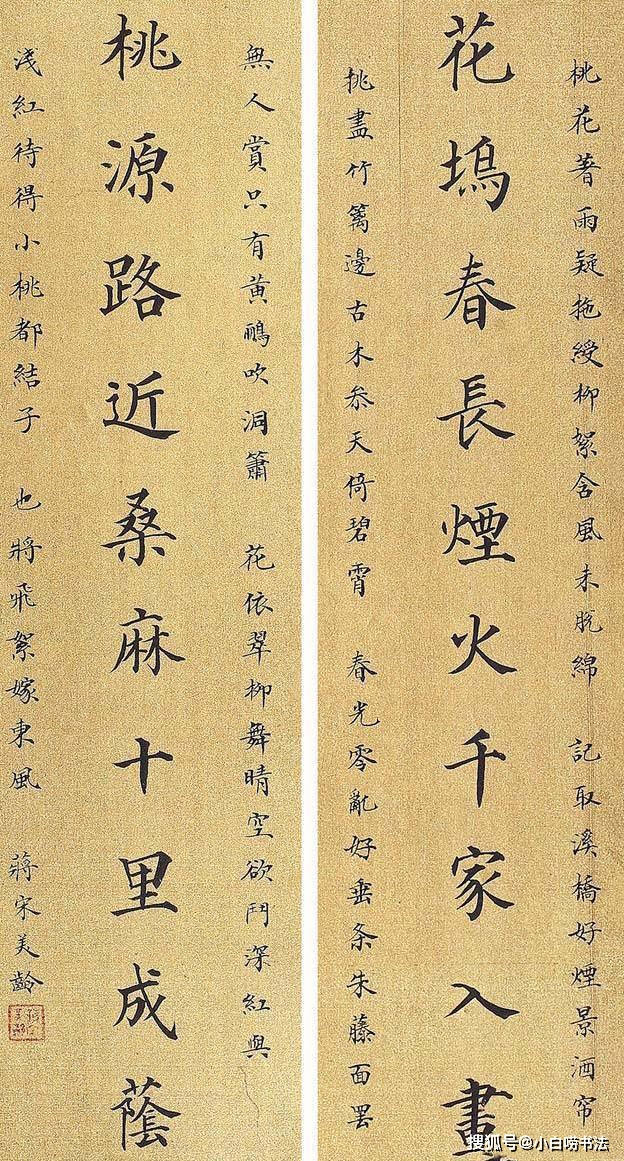 桃花著雨疑拖綬柳絮含風未脫綿 記取溪橋好煙景酒帘
花塢春長煙火千家入畫
挑盡竹籬邊古木叅天倚碧霄 春光零亂好垂条朱藤面罢
無人賞只有黃鸝吹洞簫 花依翠柳舞晴空欲鬥深紅與
桃源路近桑麻十里成蔭
淺紅待得小桃都結子 也將飛絮嫁東風 蔣宋美齡
搜狐号@小白唠书法